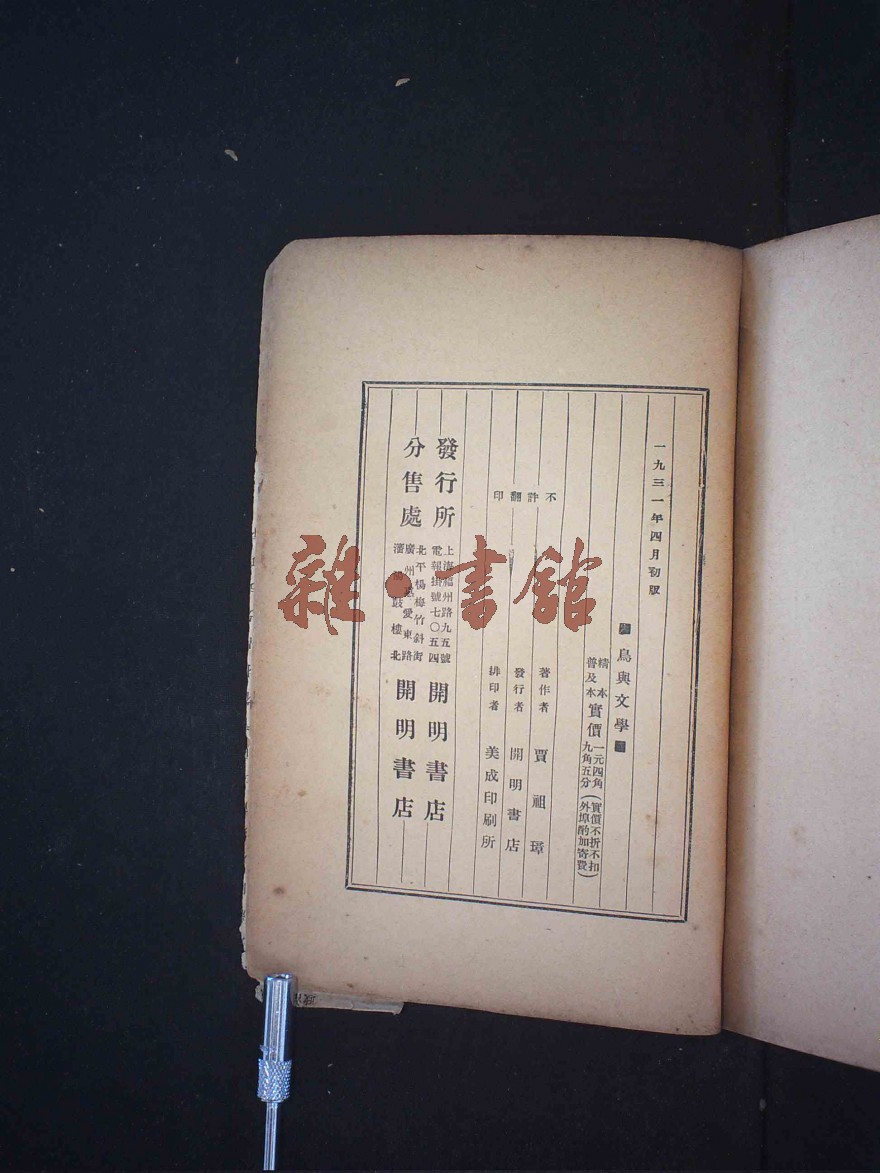 一九三一年四月初版
鳥與文學
精本
普及本
實價
一元四角
九角五分
(實價不折不扣
外埠酌加寄費)
著作者 賈祖璋
發行者 開明書店
排印者 美成印刷所
不許翻印
發行所
上海福州路九五號
電報掛號七〇五四
開明書店
分售處
北平楊梅竹斜街
廣州惠愛東路
瀋陽鼓樓北
開明書店
雜·書館